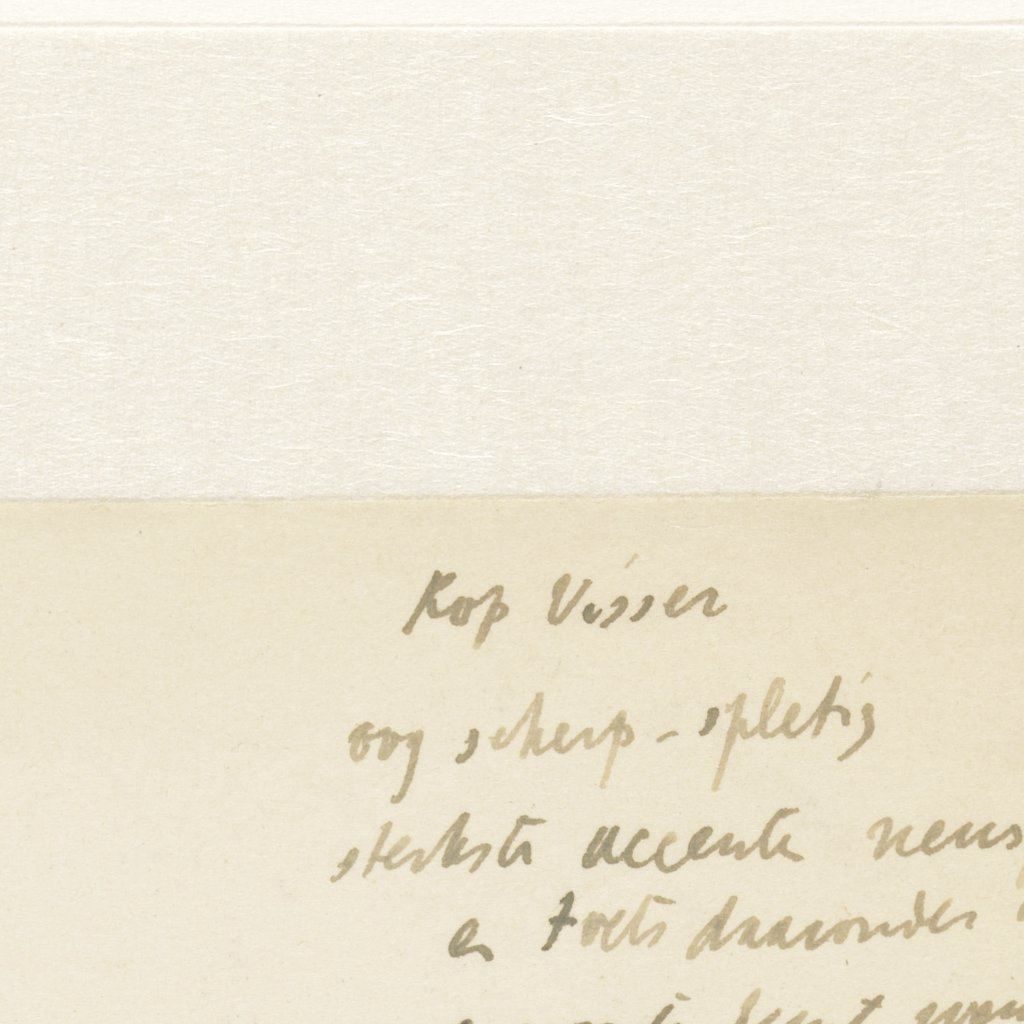 Kop Visser
oog scherp - spletig
sterkste accente neus
en toets daaronder